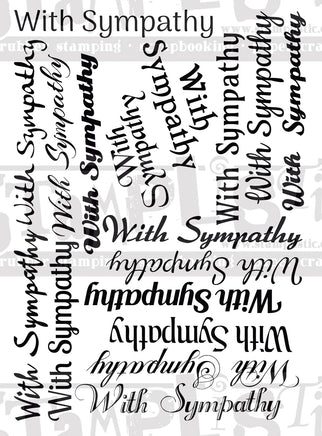 With Sympathy
With Sympathy
With Sympathy
With Sympathy
With Sympathy
With Sympathy
With
Sympathy
With
Sympathy
With Sympathy
With Sympathy
With Sympathy
With Sympathy
With Sympathy
With Sympathy
With Sympathy
With Sympathy
With Sympathy